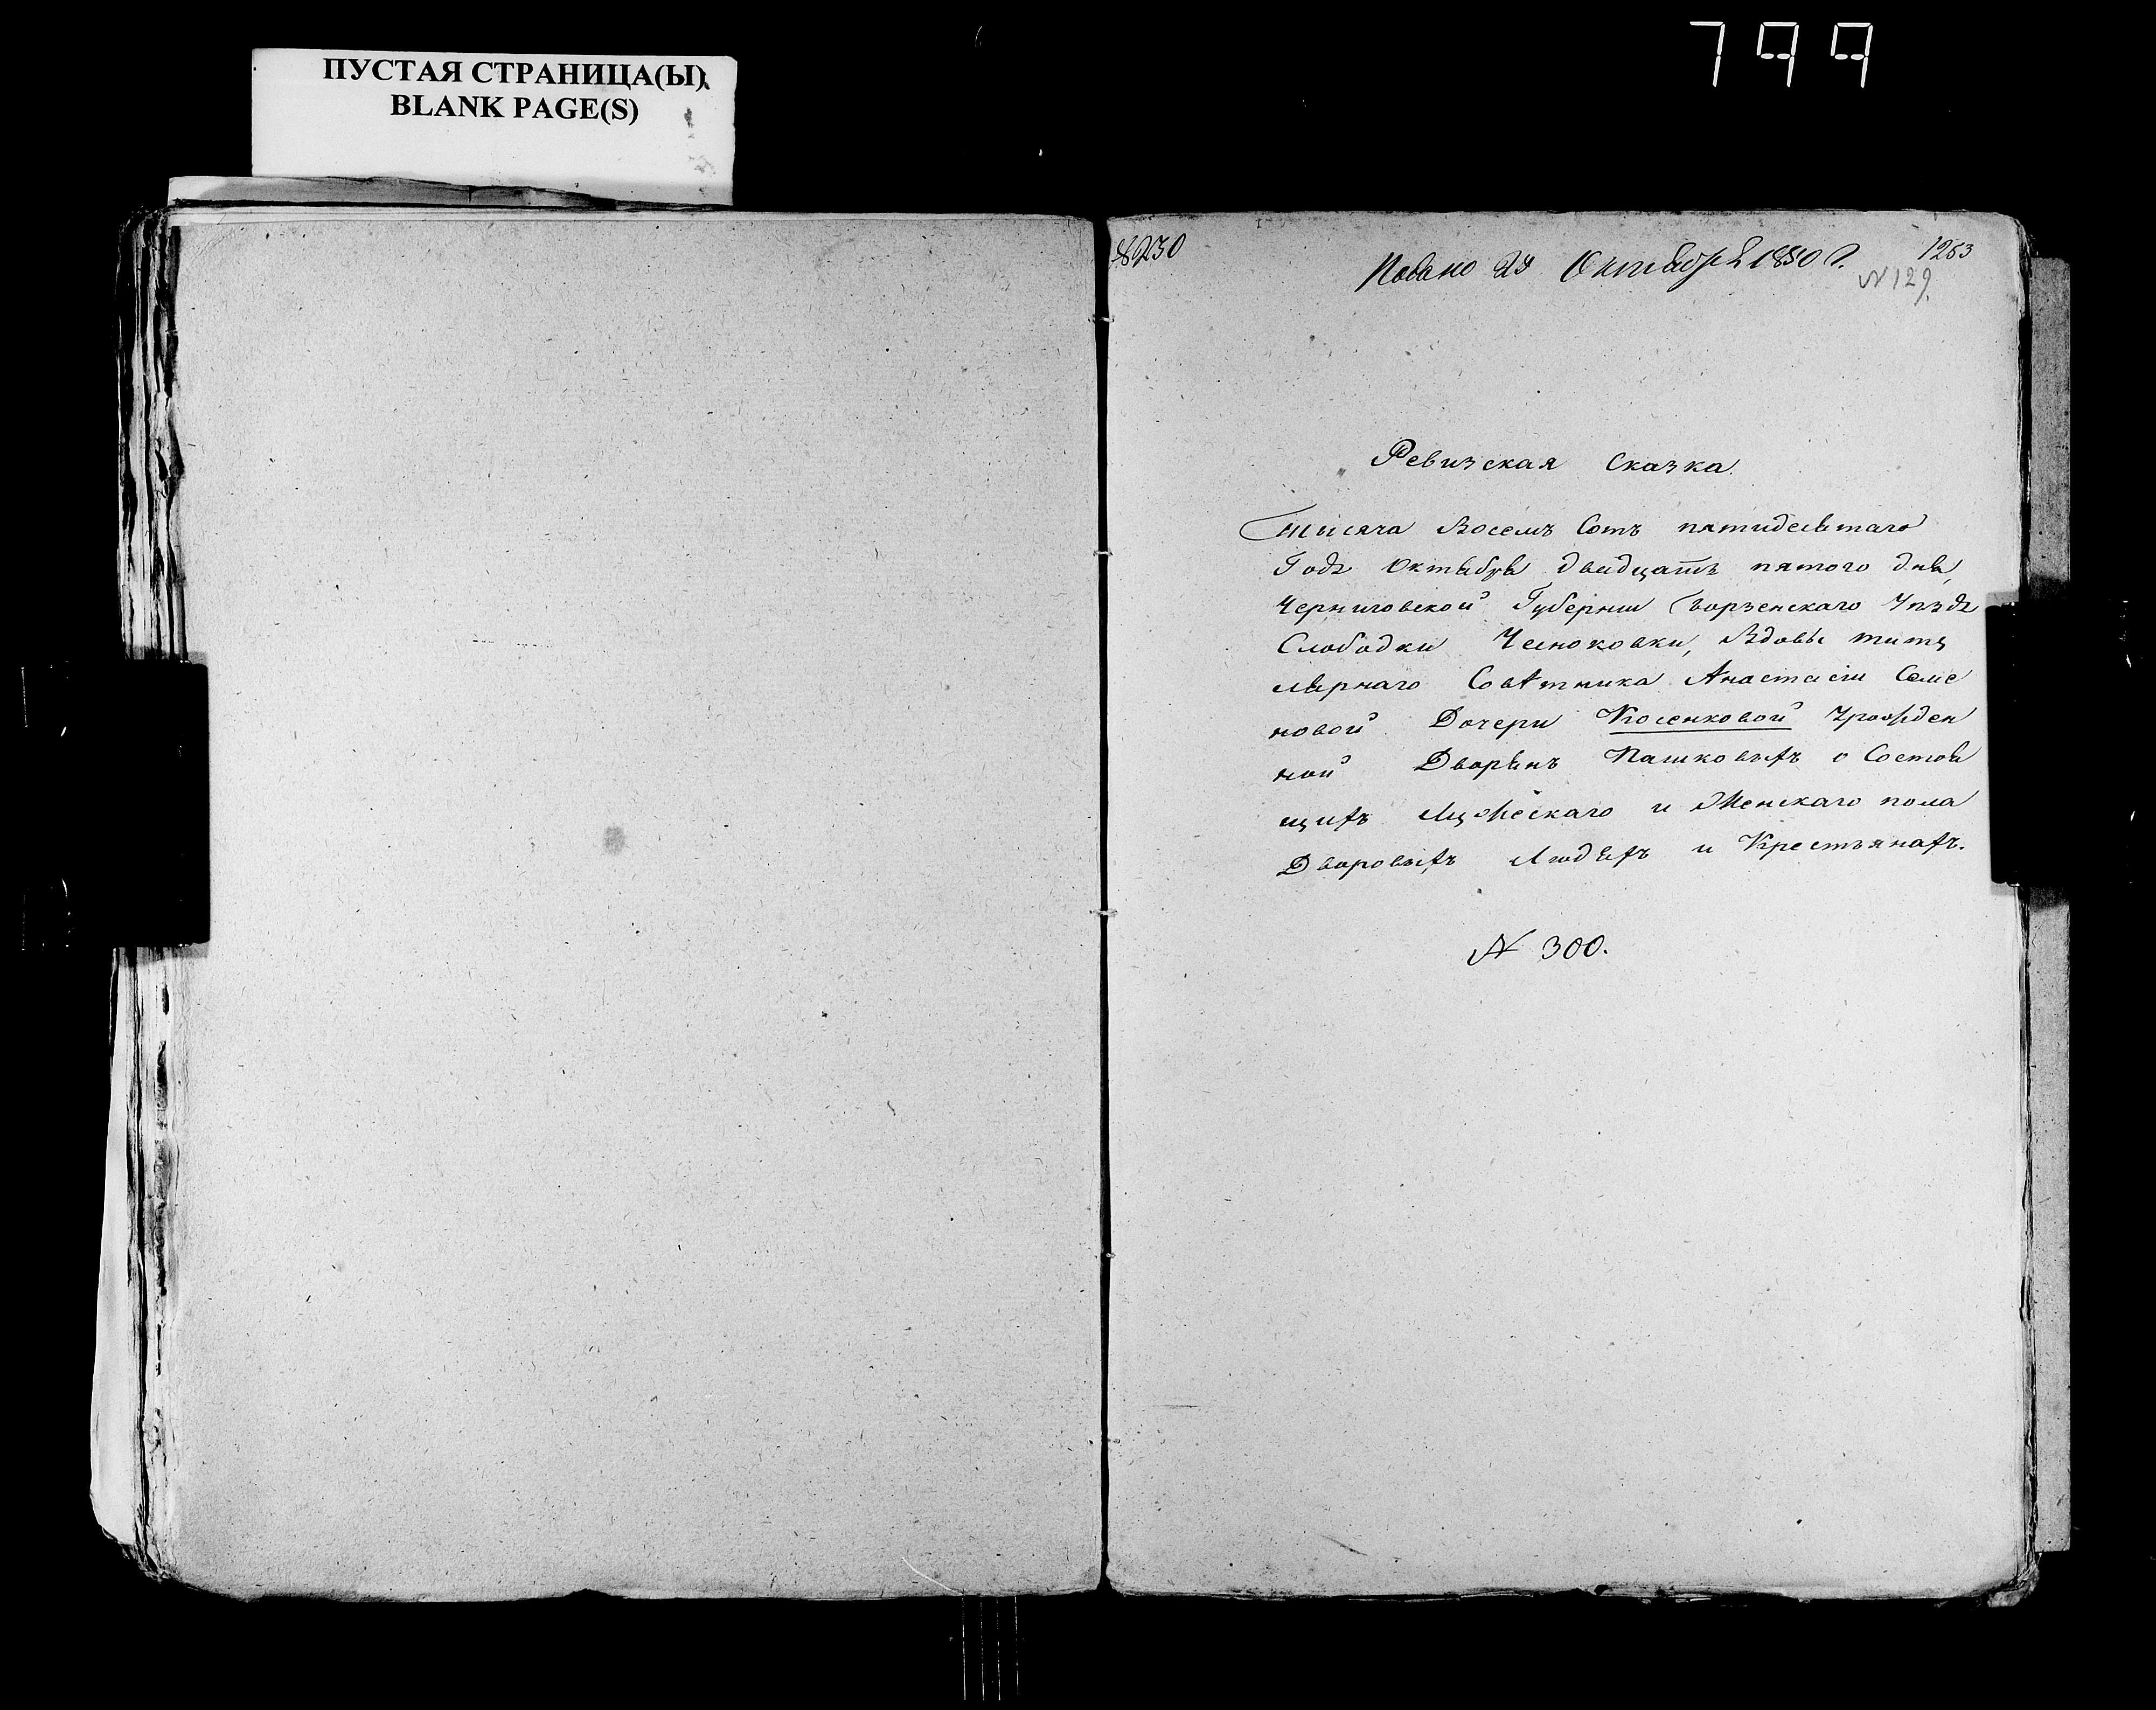 799
ПУСТАЯ СТРАНИЦА(Ы)
BLANK PAGE(S)
Подано Октября 1850 г. 1263
№ 129.
Ревизская Сказка
Тысяча Восемъ Сотъ пятидесятаго
Года Октября двадцать пятого дня,
Черниговской Губернии Борзенскаго Уезда
Слободки Чесноковки, Вдовы титу
лярнаго Совѣтника Анастасии Семе
новой Дочери Косенковой Урожден
ной Дворянъ Пашковыхъ о Состоя
щихъ Мужескаго и Женскаго пола
Дворовыхъ Людяхъ и Крестьянахъ.
№ 300.